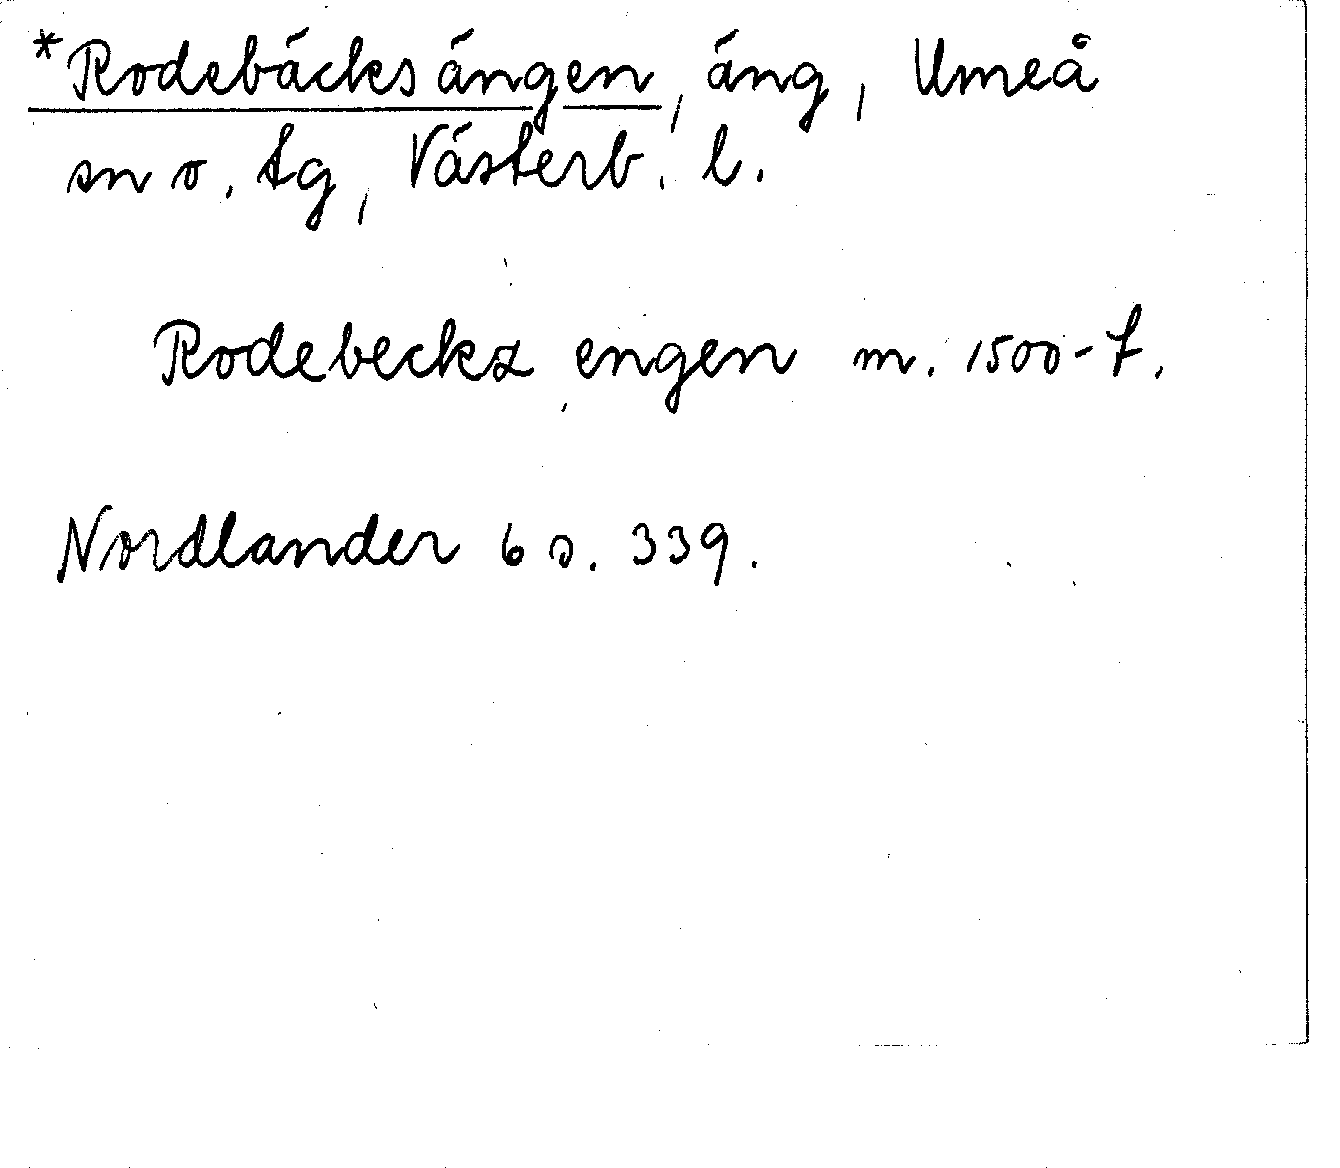 *Rodebäcksängen, äng, Umeå
sn o. tg, Västerb. l.
Rodebeckz engen m. 1500-t.
Nordlander 6 s. 339.